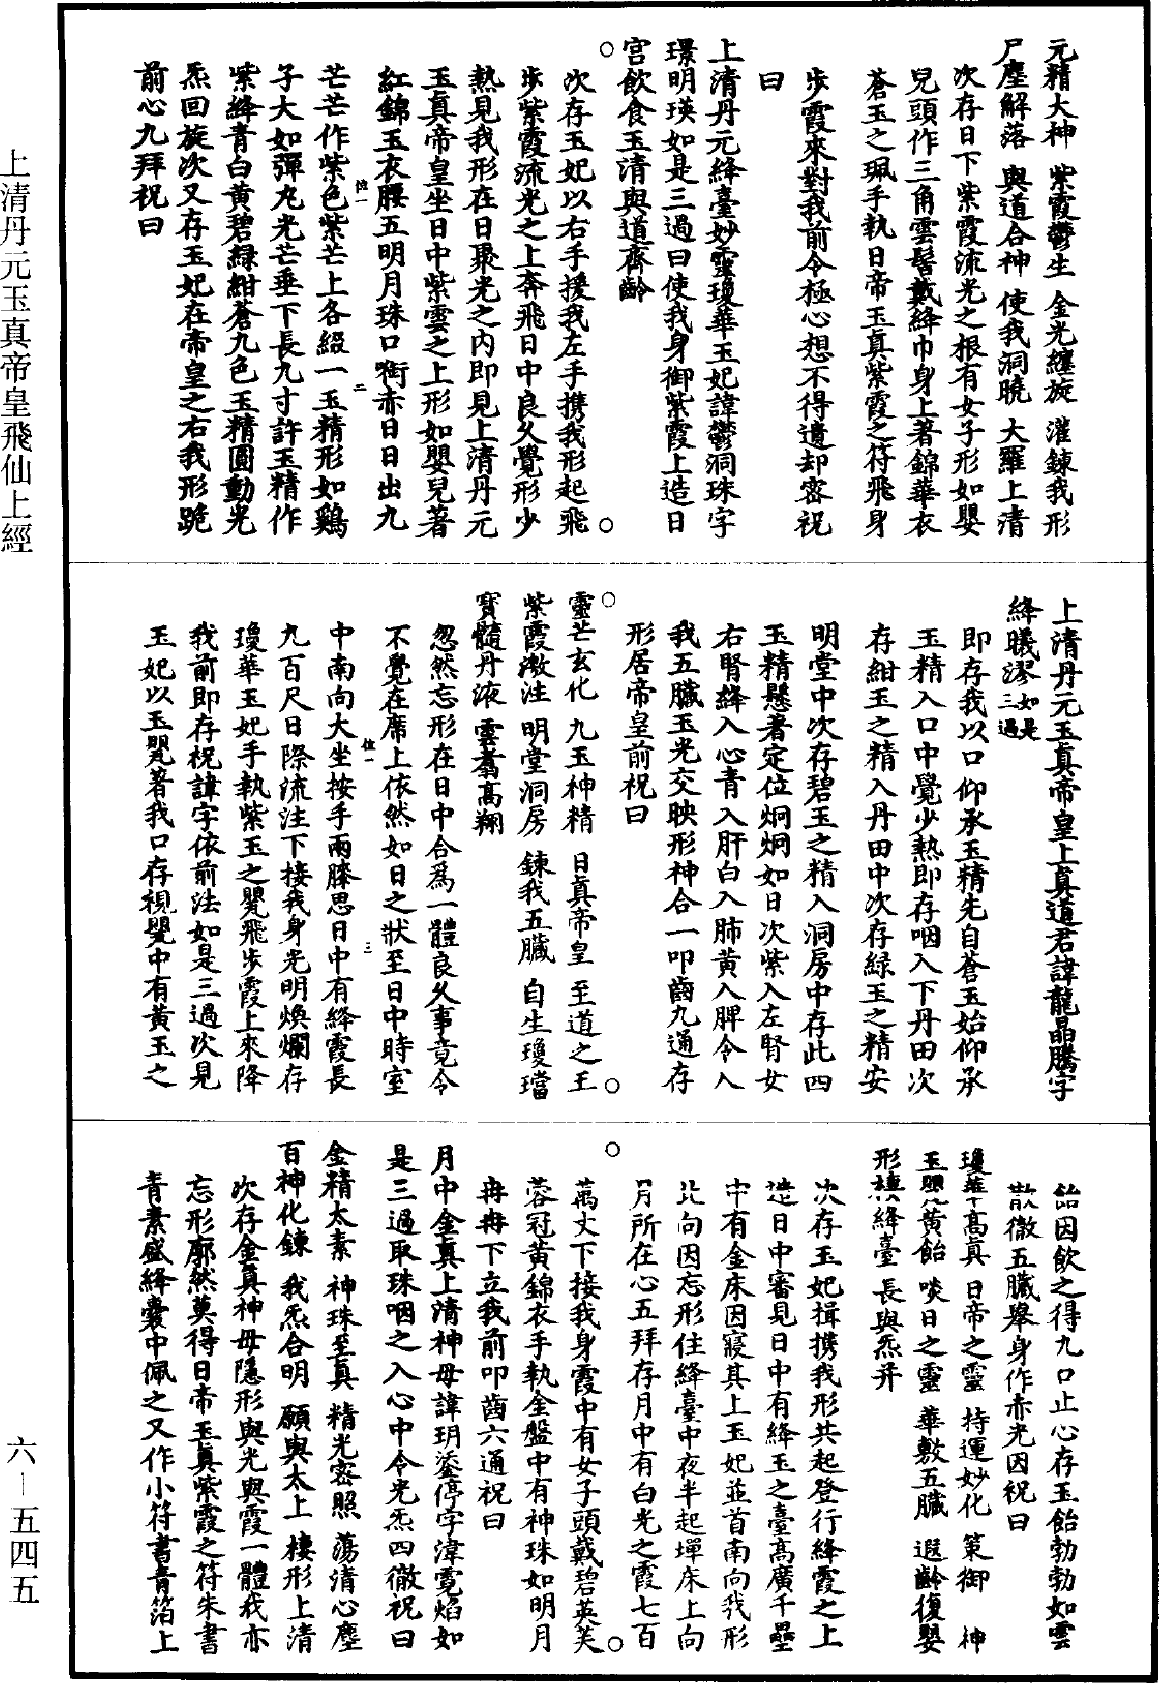 元精大神 紫霞鬱生 金光纏旋 灌鍊我形
尸塵解落 與道合神 使我洞曉 大羅上清
次存日下紫霞流光之根有女子形如嬰
兒頭作三角雲髻戴絳巾身上著錦華衣
蒼玉之珮手執日帝玉真紫霞之符飛身
步霞來對我前令極心想不得遺却密祝
曰
上清丹元絳臺妙靈瓊華玉妃諱鬱洞珠字
璟明瑛如是三過曰使我身御紫霞上造日
宮飲食玉清與道齊齡
次存玉妃以右手援我左手携我形起飛
步紫霞流光之上奔飛日中良久覺形少
熱見我形在日聚光之內即見上清丹元
玉真帝皇坐日中紫雲之上形如嬰兒著
紅錦玉衣腰五明月珠口銜赤日日出九
芒芒作紫色紫芒上各綴一玉精形如鷄
子大如彈丸光芒垂下長九寸許玉精作
紫絳青白黃碧綠紺蒼九色玉精圓動光
炁回旋次又存玉妃在帝皇之右我形跪
前心九拜祝曰
上清丹元玉真帝皇上真道君諱龍晶騰字
絳曦漻如是三過
即存我以口仰承玉精先自蒼玉始仰承
玉精入口中覺少熱即存咽入下丹田次
存紺玉之精入丹田中次存綠玉之精安
明堂中次存碧玉之精入洞房中存此四
玉精懸著定位炯炯如日次紫入左腎女
右腎絳入心青入肝白入肺黃入脾令入
我五臟玉光交映形神合一叩齒九通存
形居帝皇前祝曰
靈芒玄化 九玉神精 日真帝皇 至道之王
紫霞激注 明堂洞房 鍊我五臟 自生瓊璫
寶髓丹液 雲翥高翔
忽然忘形在日中合爲一體良久事竟令
不覺在席上依然如日之狀至日中時室
中南向大坐按手兩膝思日中有絳霞長
九百尺日際流注下接我身光明煥爛存
瓊華玉妃手執紫玉之甖飛步霞上來降
我前即存祝諱字依前法如是三過次見
玉妃以玉甖著我口存視甖中有黃玉之
飴因飲之得九口止心存玉飴勃勃如雲
散徹五臟舉身作赤光因祝曰
瓊華高真 日帝之靈 持運妙化 策御 神
玉甖黃飴 啖日之靈 華敷五臟 遐齡復嬰
形棲絳臺 長與炁并
次存玉妃揖携我形共起登行絳霞之上
造日中審見日中有絳玉之臺高廣千壘
中有金床因寢其上玉妃並首南向我形
北向因忘形住絳臺中夜半起墠床上向
月所在心五拜存月中有白光之霞七百
萬丈下接我身霞中有女子頭戴碧英芙
蓉冠黃錦衣手執金盤中有神珠如明月
冉冉下立我前叩齒六通祝曰
月中金真上清神母諱玥銮停字湋霓焰如
是三過取珠咽之入心中令光炁四徹祝曰
金精太素 神珠至真 精光密照 蕩清心塵
百神化鍊 我炁合明 願與太上 棲形上清
次存金真神母隱形與光與霞一體我亦
忘形廓然莫得日帝玉真紫霞之符朱書
青素盛絳囊中佩之又作小符書青箔上
上清丹元玉真帝皇飛仙上經
六—五四五